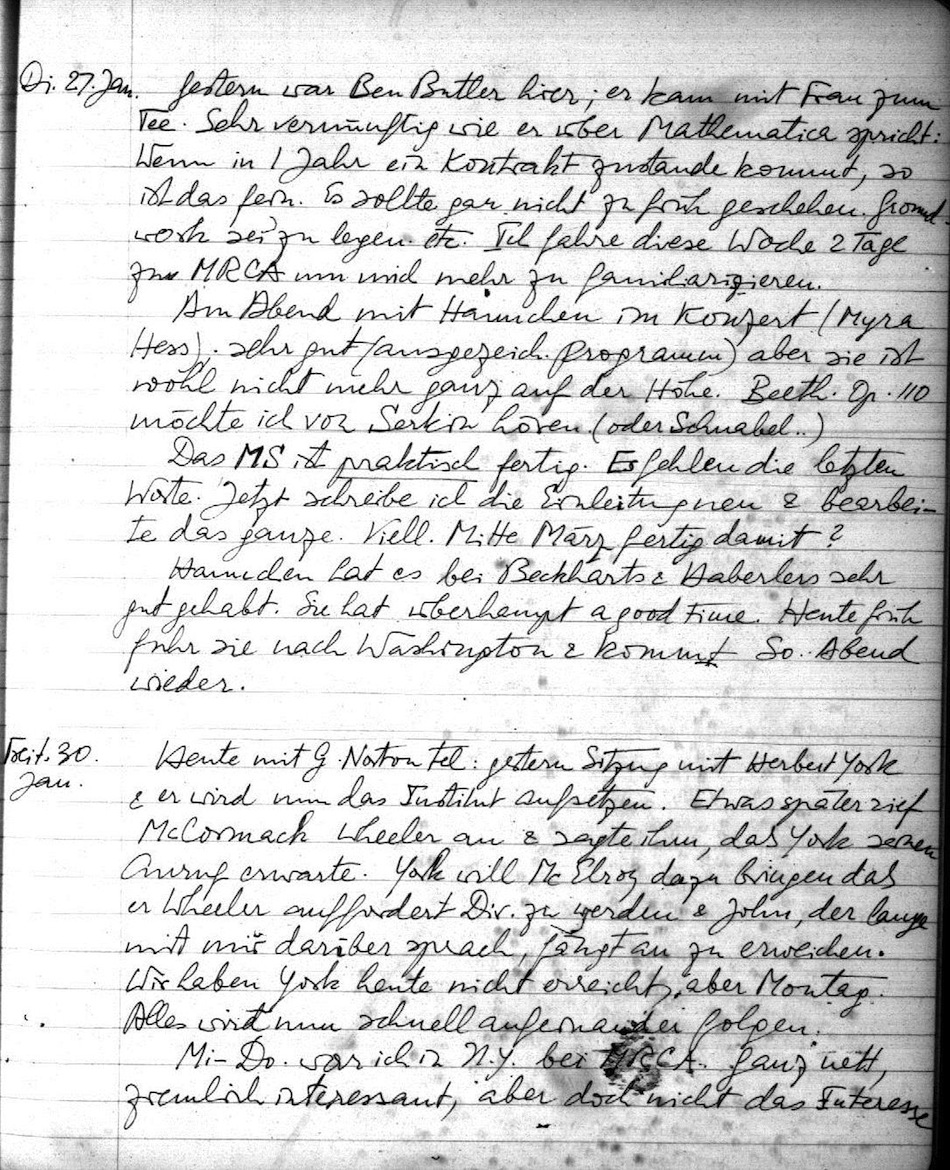 Di. 27. Jan. Gestern war Ben Butler hier; er kam mit Frau zum
Tee. Sehr vernünftig wie er über Mathematica spricht:
Wenn in 1 Jahr ein Kontrakt zustande kommt, so
ist das fein. Es sollte gar nicht zu früh geschehen. Ground
work sei zu legen. etc. Ich fahre diese Woche 2 Tage
zur MRCA um mich mehr zu familiarizieren.
Am Abend mit Hannchen im Konzert (Myra
Hess). sehr gut (ausgezeich. Programm) aber sie ist
wohl nicht mehr ganz auf der Höhe. Beeth. Op. 110
möchte ich von Serkin hören (oder Schnabel..)
Das MS ist praktisch fertig. Es fehlen die letzten
Worte. Jetzt schreibe ich die Einleitung neu & bearbei-
te das ganze. Viell. Mitte März fertig damit?
Hannchen hat es bei Beckharts & Haberlers sehr
gut gehabt. Sie hat überhaupt a good time. Heute früh
fuhr sie nach Washington & kommt So. Abend
wieder.
Freit. 30. Heute mit G. Norton tel: gestern Sitzung mit Herbert York
Jan. & er wird nun das Institut aufsetzen. Etwas später rief
McCormack Wheeler an & sagte ihm, das York seinen
Anruf erwarte. York will McElroy dazu bringen das
er Wheeler auffordert Dir. zu werden & John, der lange
mit mir darüber sprach, fängt an zu erweichen.
Wir haben York heute nicht erreicht, aber Montag.
Alles wird nun schnell aufeinander folgen.
Mi-Do. war ich in N.Y. bei MRCA. Ganz nett,
ziemlich interessant, aber doch nicht das Interesse